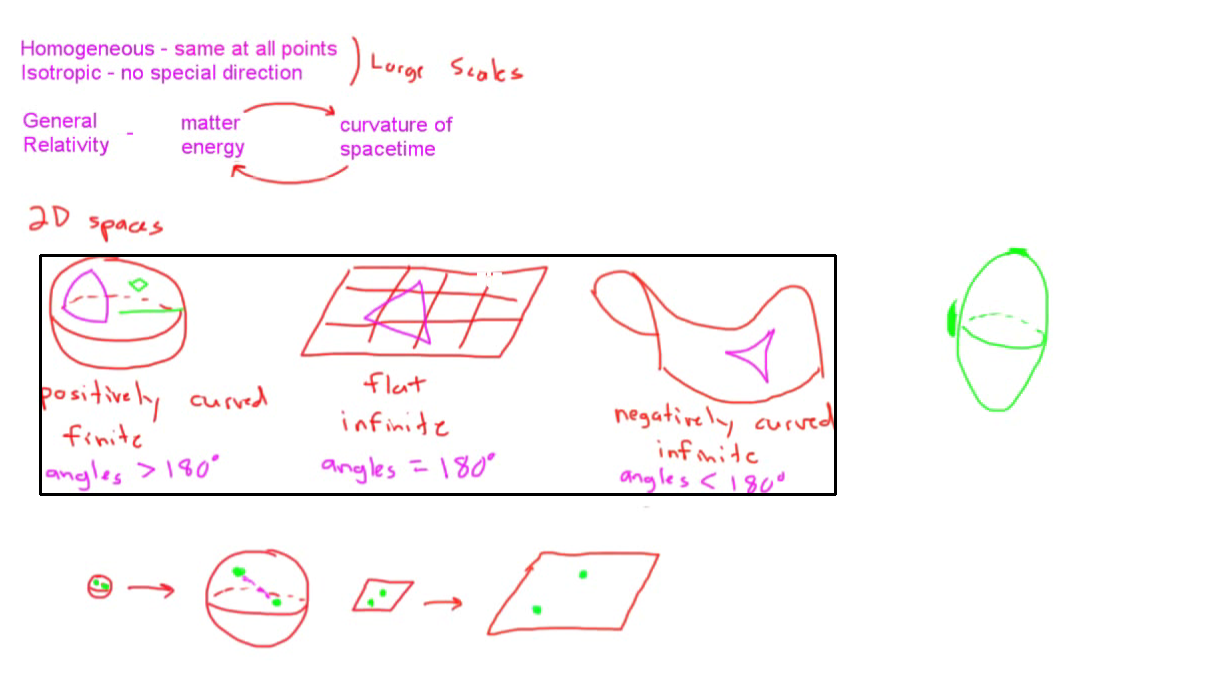 Homogeneous - same at all points
Isotropic - no special direction
Large Scales
General Relativity - 
matter energy
curvature of spacetime
2D spaces
positively curved
finite
angles > 180°
flat
infinite
angles = 180°
negatively curved
infinite
angles < 180°